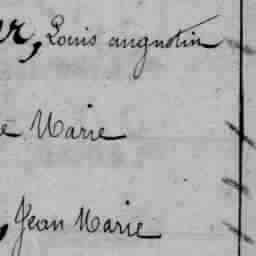 er, Louis augustin
e Marie
, Jean Marie